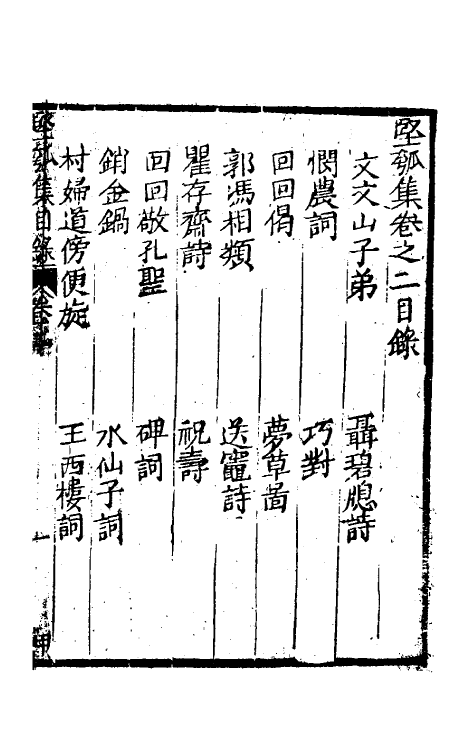 堅瓠集卷之二目錄
文文山子弟　聶碧牕詩
憫農詞　巧對
回回偈　夢草啚
郭馮相類　送竈詩
瞿存齋詩　祝壽
回回敬孔聖　碑詞
銷金鍋　水仙子詞
村婦道傍便旋　王西樓詞
堅瓠集目錄
一